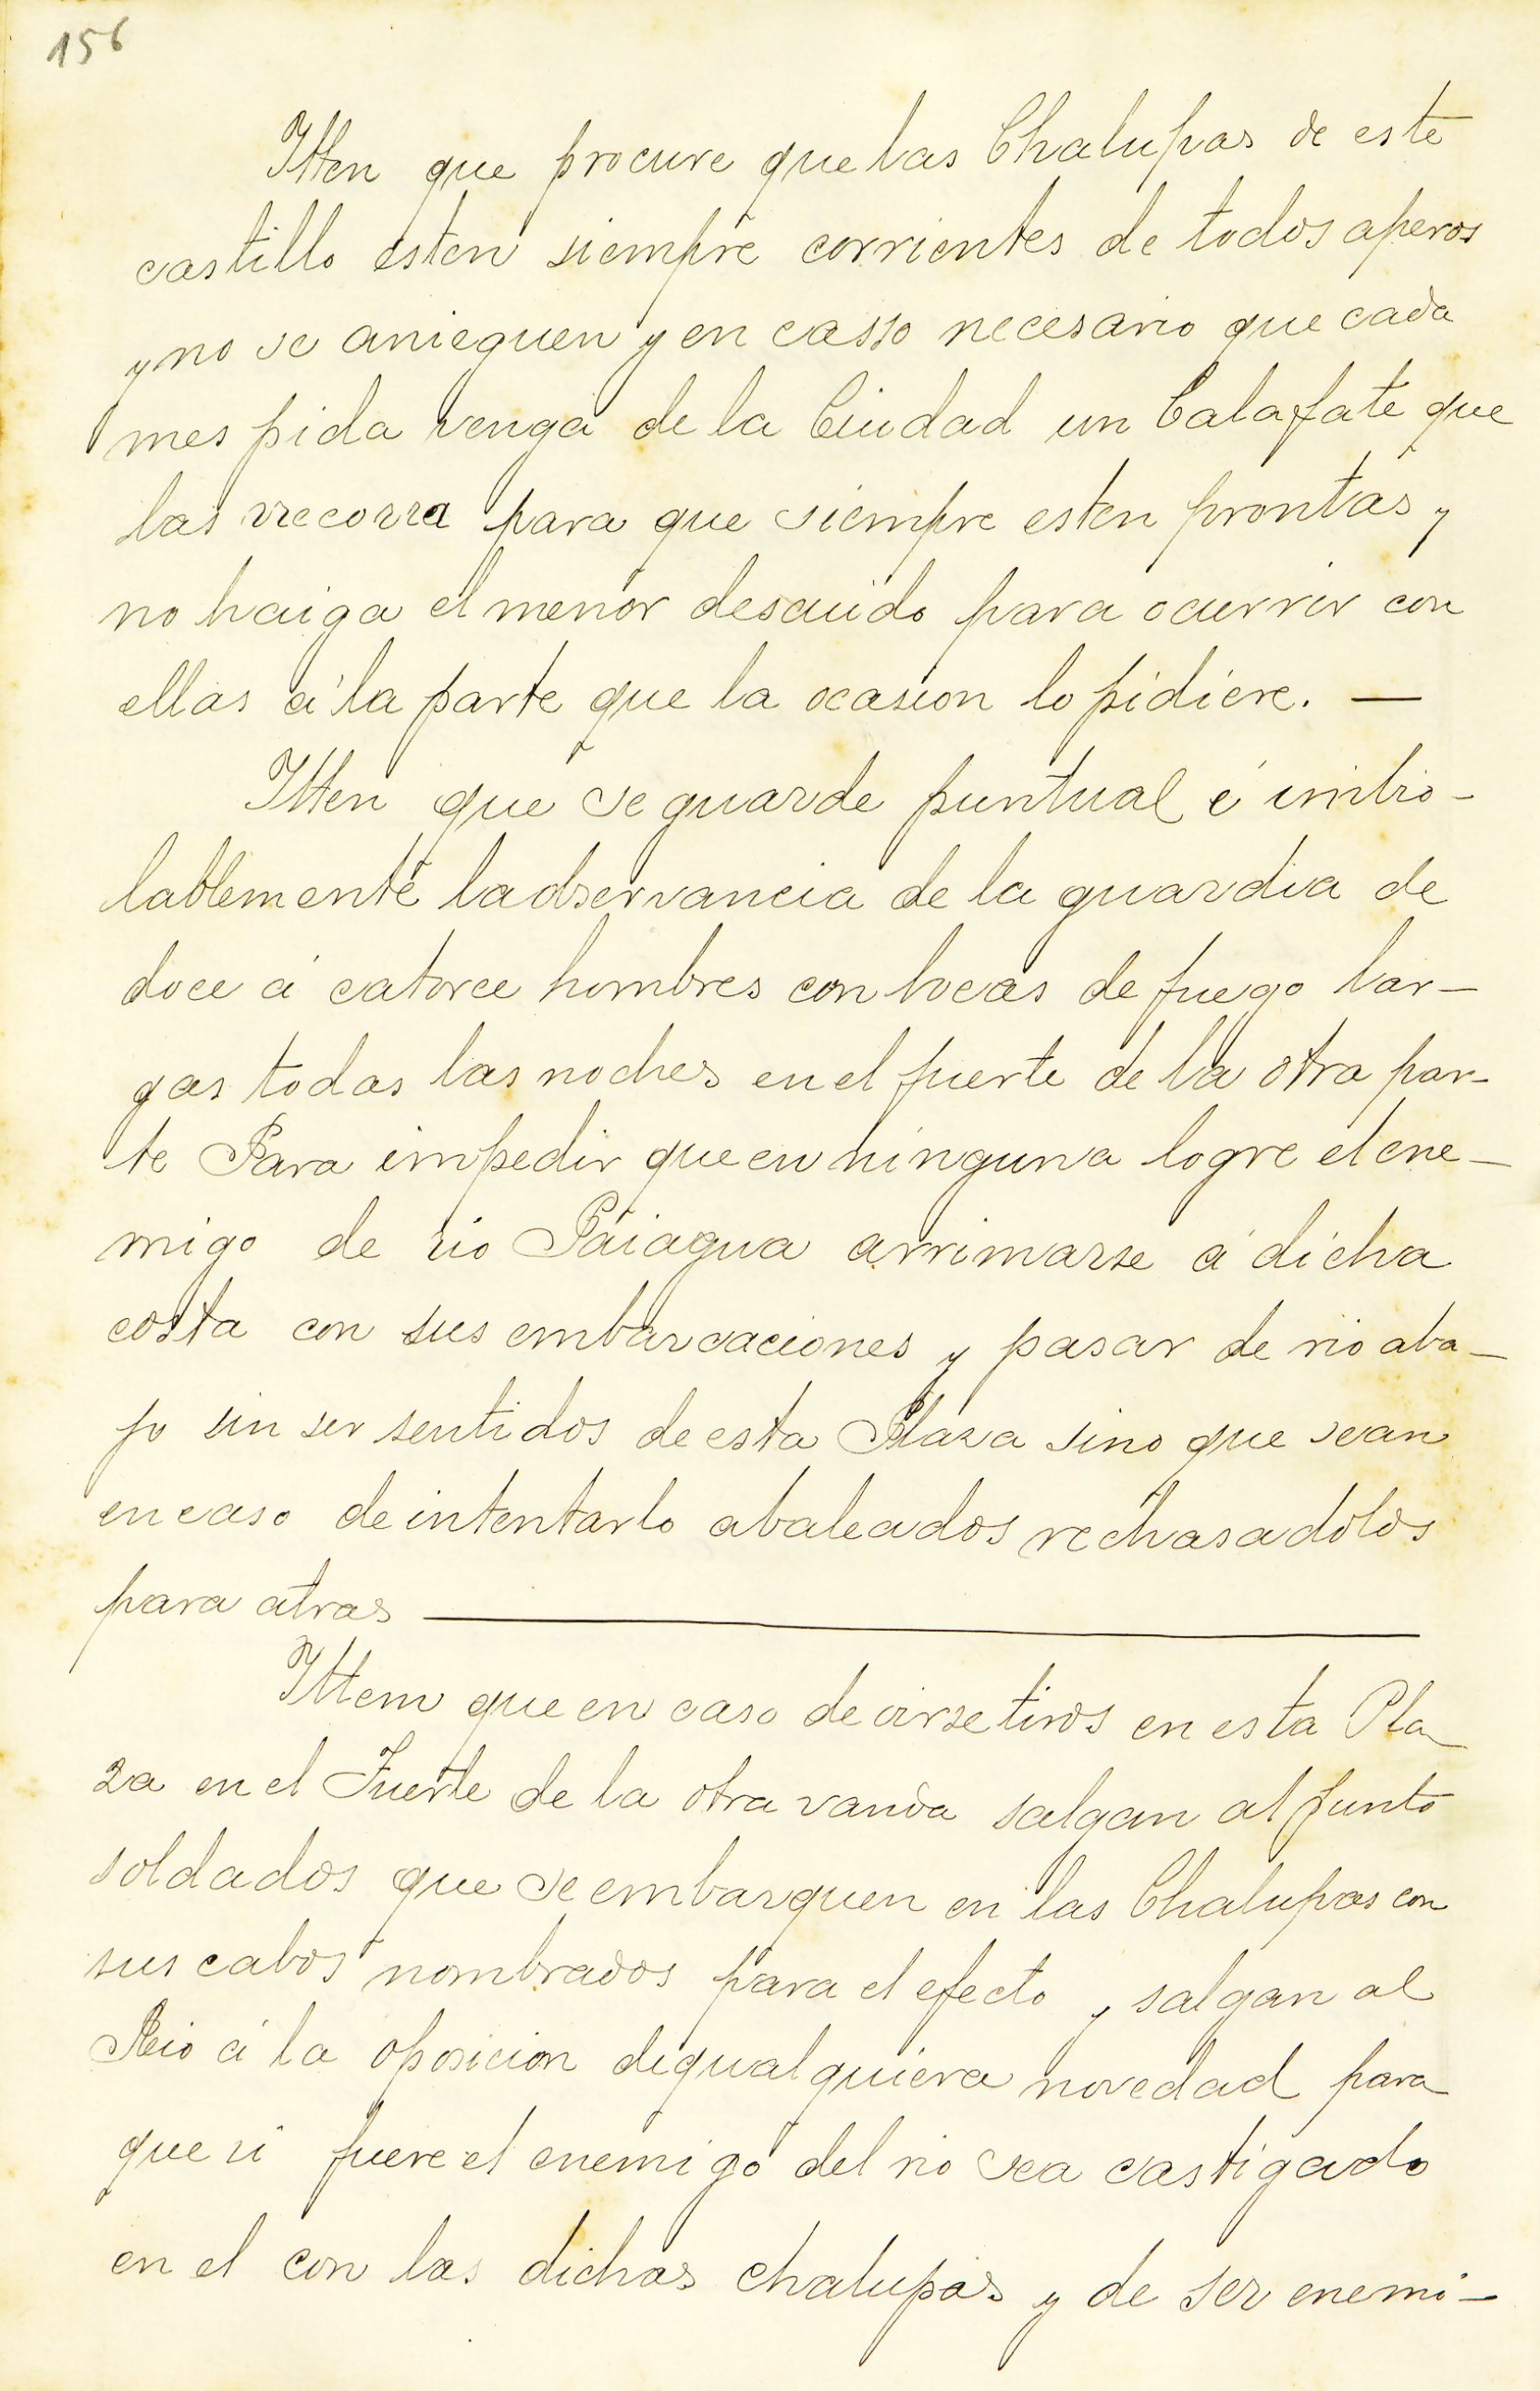 156
Itten que procure que las Chalupas de este
castillo esten siempre corrientes de todos aperos
y no se anieguen y en casso necesario que cada
mes pida venga de la Ciudad un Calafate que
las rrecorra para que siempre esten prontas y
no haiga el menor descuido para ocurrir con
ellas á la parte que la ocasion lo pidiere. —
Itten que se guarde puntual é imbio-
lablemente la observancia de la guardia de
doce á catorce hombres con bocas de fuego lar-
gas todas las noches en el fuerte de la otra par-
te Para impedir que en ninguna logre el ene-
migo de rio Paiagua arrimarse á dicha
costa con sus embarcaciones y pasar de rio aba-
jo sin ser sentidos de esta Plaza sino que sean
en caso de intentarlo abaleados rechasadolos
para atras —
Ittem que en caso de oirse tiros en esta Pla-
za en el Fuerte de la otra vanda salgan al punto
soldados que se embarquen en las Chalupas con
sus cabos nombrados para el efecto y salgan al
Rio á la oposicion de qualquiera novedad para
que si fuere el enemigo del rio sea castigado
en el con las dichas chalupas y de ser enemi-